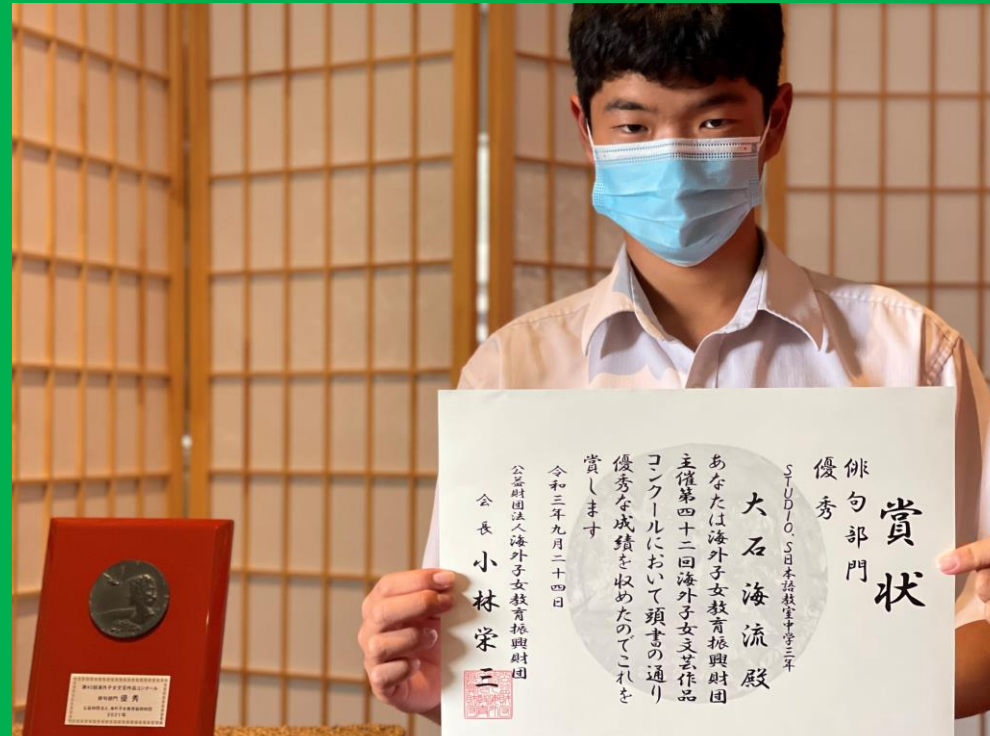 賞状
俳句部門
優秀
STUDIO.S日本語教室中学三年
大石海流殿
あなたは海外子女教育振興財団
主催第四十二回海外子女文芸作品
コンクールにおいて頭書の通り
優秀な成績を収めたのでこれを
賞します
令和三年九月二十四日
公益財団法人海外子女教育振興財団
会長 小林栄三
第42回海外子女文芸作品コンクール
俳句部門 優秀
公益財団法人 海外子女教育振興財団
2021年